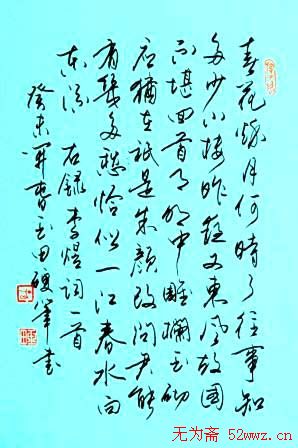 春花秋月何時了往事知
多少小楼昨夜又東風故国
不堪回首月明中雕欄玉砌
应猶在祇是朱顔改問君能
有幾多愁恰似一江春水向
东流 右録李煜詞一首
癸未 玉田硬筆書
无为斋 52wwz.cn